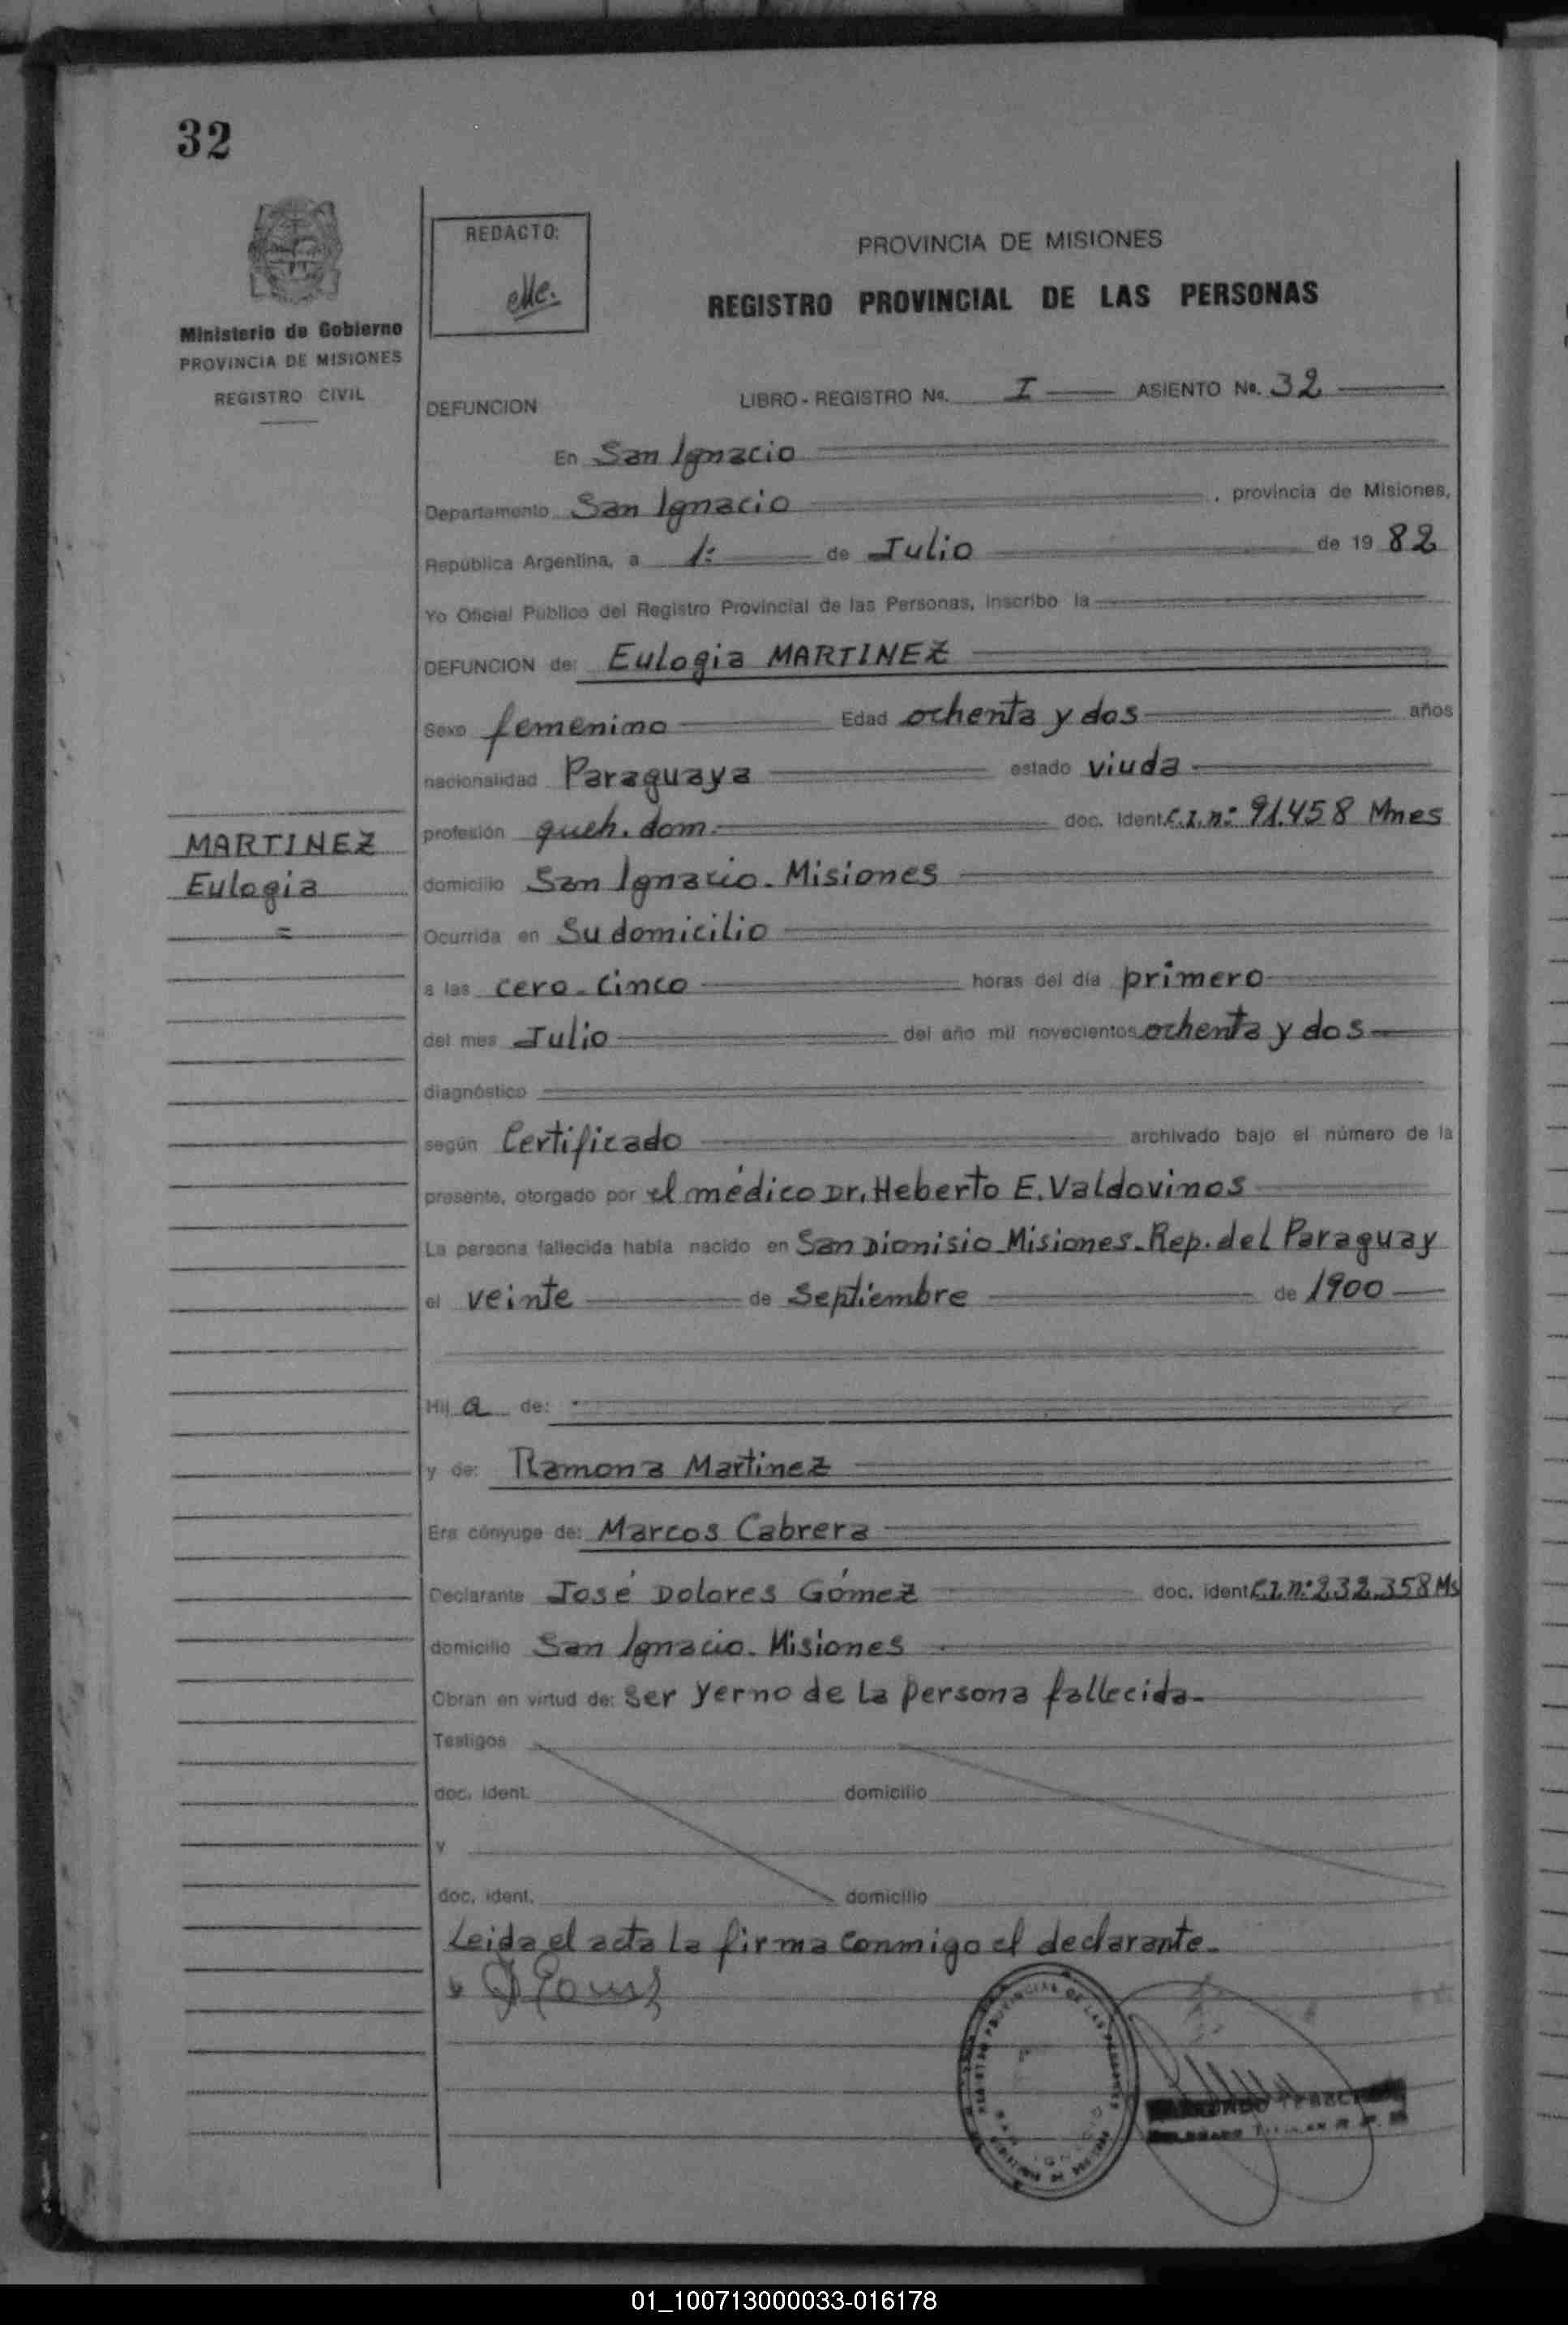 32
Ministerio de Gobierno
PROVINCIA DE MISIONES
REGISTRO CIVIL
REDACTO:
PROVINCIA DE MISIONES
REGISTRO PROVINCIAL DE LAS PERSONAS
DEFUNCION LIBRO - REGISTRO Nº. I ASIENTO Nº. 32
En San Ignacio
Departamento San Ignacio , provincia de Misiones,
República Argentina, a 1º de Julio de 19 82
Yo Oficial Público del Registro Provincial de las Personas, inscribo la
DEFUNCION de: Eulogia MARTINEZ
Sexo femenino Edad ochenta y dos años
nacionalidad Paraguaya estado viuda
MARTINEZ
Eulogia
=
profesión queh. dom. doc. Ident. C.I. nº 91.458 Mnes
domicilio San Ignacio - Misiones
Ocurrida en Su domicilio
a las cero - cinco horas del día primero
del mes Julio del año mil novecientos ochenta y dos
diagnóstico
según Certificado archivado bajo el número de la
presente, otorgado por el médico Dr. Heberto E. Valdovinos
La persona fallecida había nacido en San Dionisio Misiones - Rep. del Paraguay
el veinte de Septiembre de 1900
Hij a de:
y de: Ramona Martinez
Era cónyuge de: Marcos Cabrera
Declarante José Dolores Gómez doc. ident. C.I. nº 232.358 Ms
domicilio San Ignacio - Misiones
Obran en virtud de: ser yerno de la persona fallecida -
Testigos
doc. ident. domicilio
y
doc. ident. domicilio
Leida el acta la firma conmigo el declarante -
01_100713000033-016178